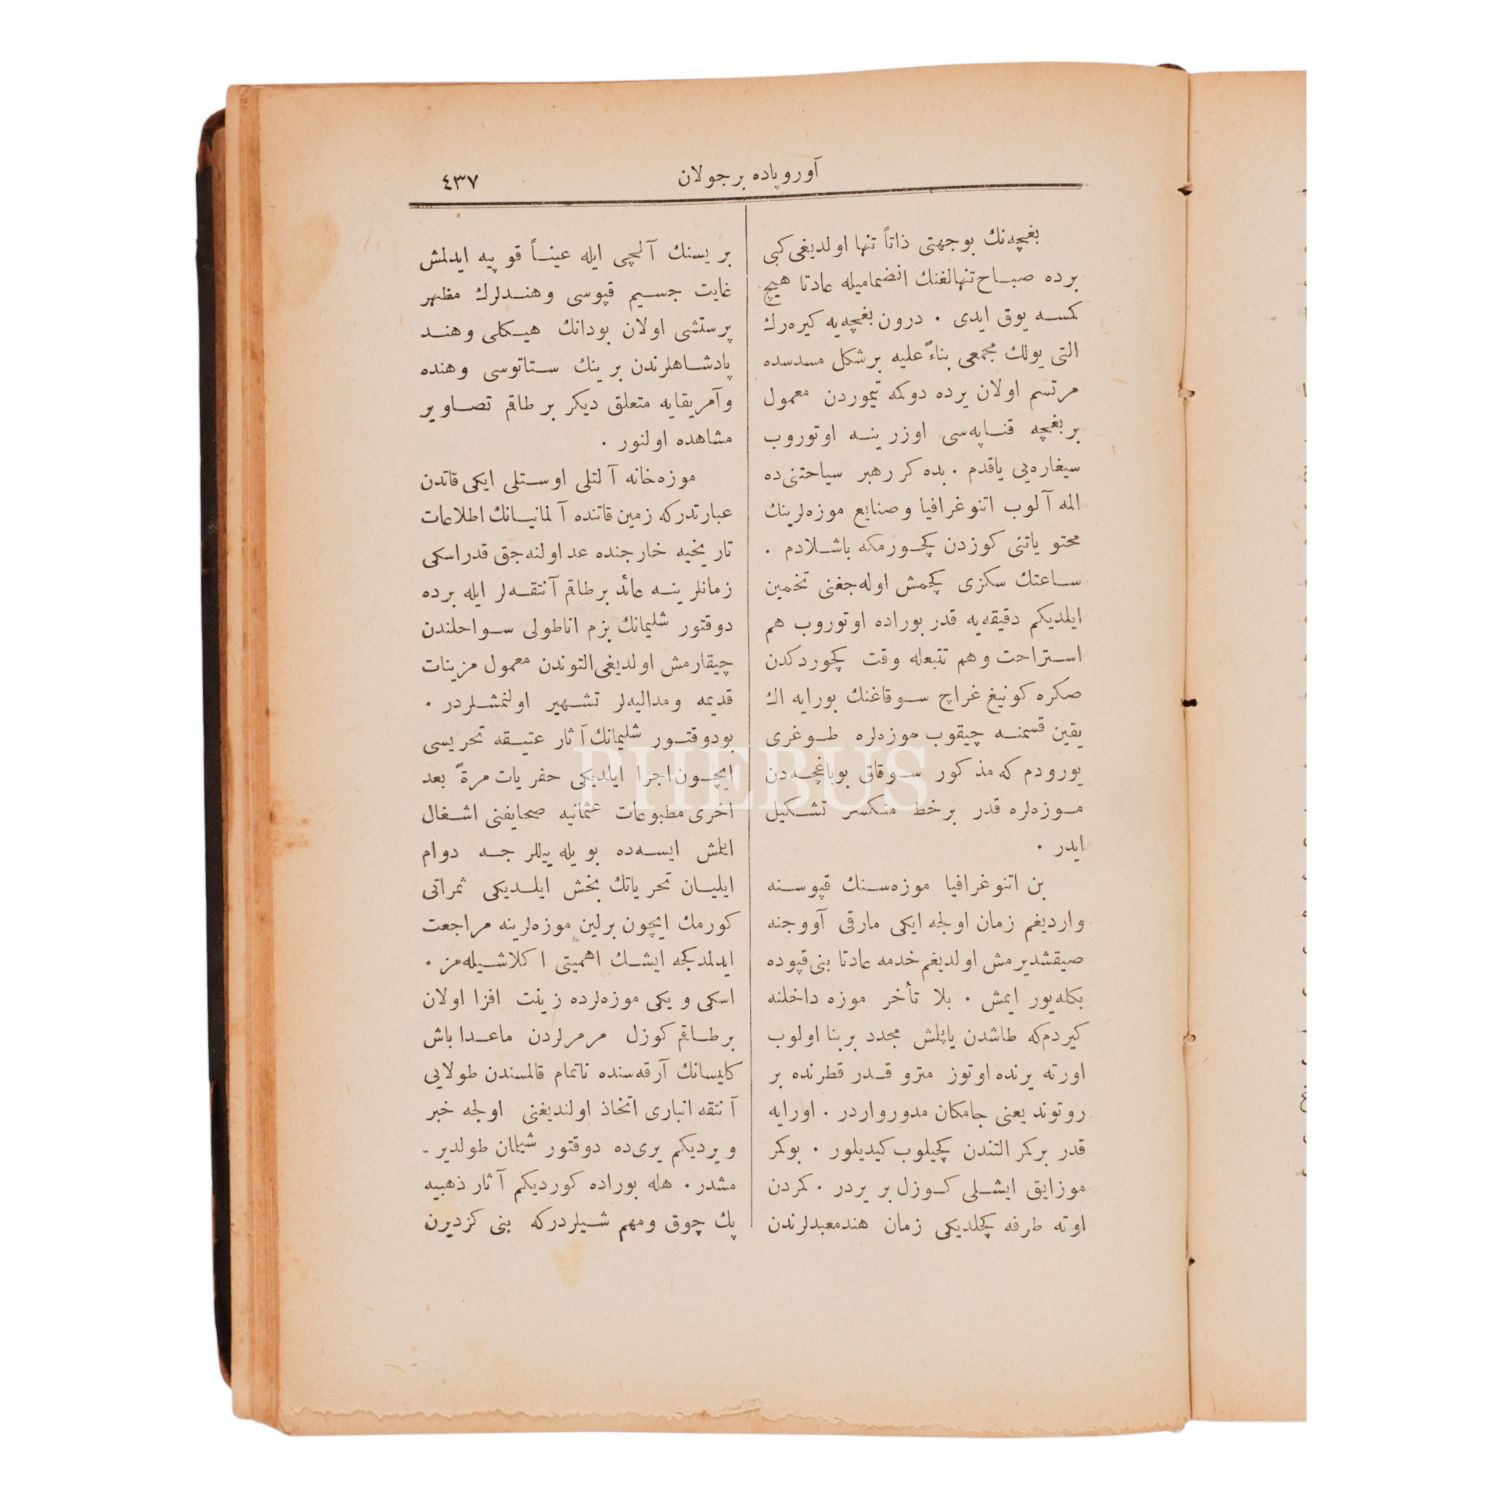 آوروپاده بر جولان
٤٣٧
بغچه‌نك بوجهتی ذاتاً تنها اولدیغی کبی
برده صباح تنهالغنك انضمامیله عادتا هیچ
کمسه یوق ایدی . درون بغچه‌یه کیره‌رك
التی یولك مجمعی بناءً علیه برشکل مسدسده
مرتسم اولان یرده دوکمه تیموردن معمول
بر بغچه قناپه‌سی اوزرینه اوتوروب
سیغاره‌یی یاقدم . بده کر رهبر سیاحتنی‌ده
المه آلوب اتنوغرافیا وصنایع موزه‌لرینك
محتویاتنی کوزدن کچورمکه باشلادم .
ساعتك سکزی کچمش اوله‌جغنی تخمین
ایلدیکم دقیقه‌یه قدر بوراده اوتوروب هم
استراحت وهم تتبعله وقت کچوردکدن
صکره کونیغ غراچ سوقاغنك بورایه اك
یقین قسمنه چیقوب موزه‌لره طوغری
یورودم که مذکور سوقاق بوباغچه‌دن
موزه‌لره قدر برخط منکسر تشکیل
ایدر .
بن اتنوغرافیا موزه‌سنك قپوسنه
واردیغم زمان اولجه ایکی مارقی آووجنه
صیقشدیرمش اولدیغم خدمه عادتا بنی قپوده
بکله‌یور ایمش . بلا تأخر موزه داخلنه
کیردم‌که طاشدن یاپلش مجدد بربنا اولوب
اورته یرنده اوتوز مترو قدر قطرنده بر
روتوند یعنی جامکان مدور واردر . اورایه
قدر برکمر التندن کچیلوب کیدیلور . بوکمر
موزایق ایشلی کوزل بریردر . کمردن
اوته طرفه کچلدیکی زمان هند معبدلرندن
بریسنك آلچی ایله عیناً قوپیه ایدلمش
غایت جسیم قپوسی وهندلرك مظهر
پرستشی اولان بودانك هیکلی وهند
پادشاهلرندن برینك ستاتوسی وهنده
وآمریقایه متعلق دیکر برطاقم تصاویر
مشاهده اولنور .
موزه‌خانه آلتلی اوستلی ایکی قاتدن
عبارتدرکه زمین قاتنده آلمانیانك اطلاعات
تاریخیه خارجنده عد اولنه‌جق قدر اسکی
زمانلرینه عائد برطاقم آنتقه‌لر ایله برده
دوقتور شلیمانك بزم اناطولی سواحلندن
چیقارمش اولدیغی التوندن معمول مزینات
قدیمه ومدالیه‌لر تشهیر اولنمشلردر .
بودوقتور شلیمانك آثار عتیقه تحریسی
ایچون اجرا ایلدیکی حفریات مرةً بعد
اخری مطبوعات عثمانیه صحایفنی اشغال
اتلش ایسه‌ده بویله ییللرجه دوام
ایلیان تحریاتك بخش ایلدیکی ثمراتی
کورمك ایچون برلین موزه‌لرینه مراجعت
ایدلدکجه ایشك اهمیتی اکلاشیله‌مز .
اسکی ویکی موزه‌لرده زینت افزا اولان
برطاقم کوزل مرمرلردن ماعدا باش
کلیسانك آرقه‌سنده ناتمام قالمسندن طولایی
آنتقه انباری اتخاذ اولندیغنی اولجه خبر
ویردیکم یری‌ده دوقتور شلیمان طولدیر-
مشدر. هله بوراده کوردیکم آثار ذهبیه
پك چوق ومهم شیلردرکه بنی کزدیرن
PHEBUS